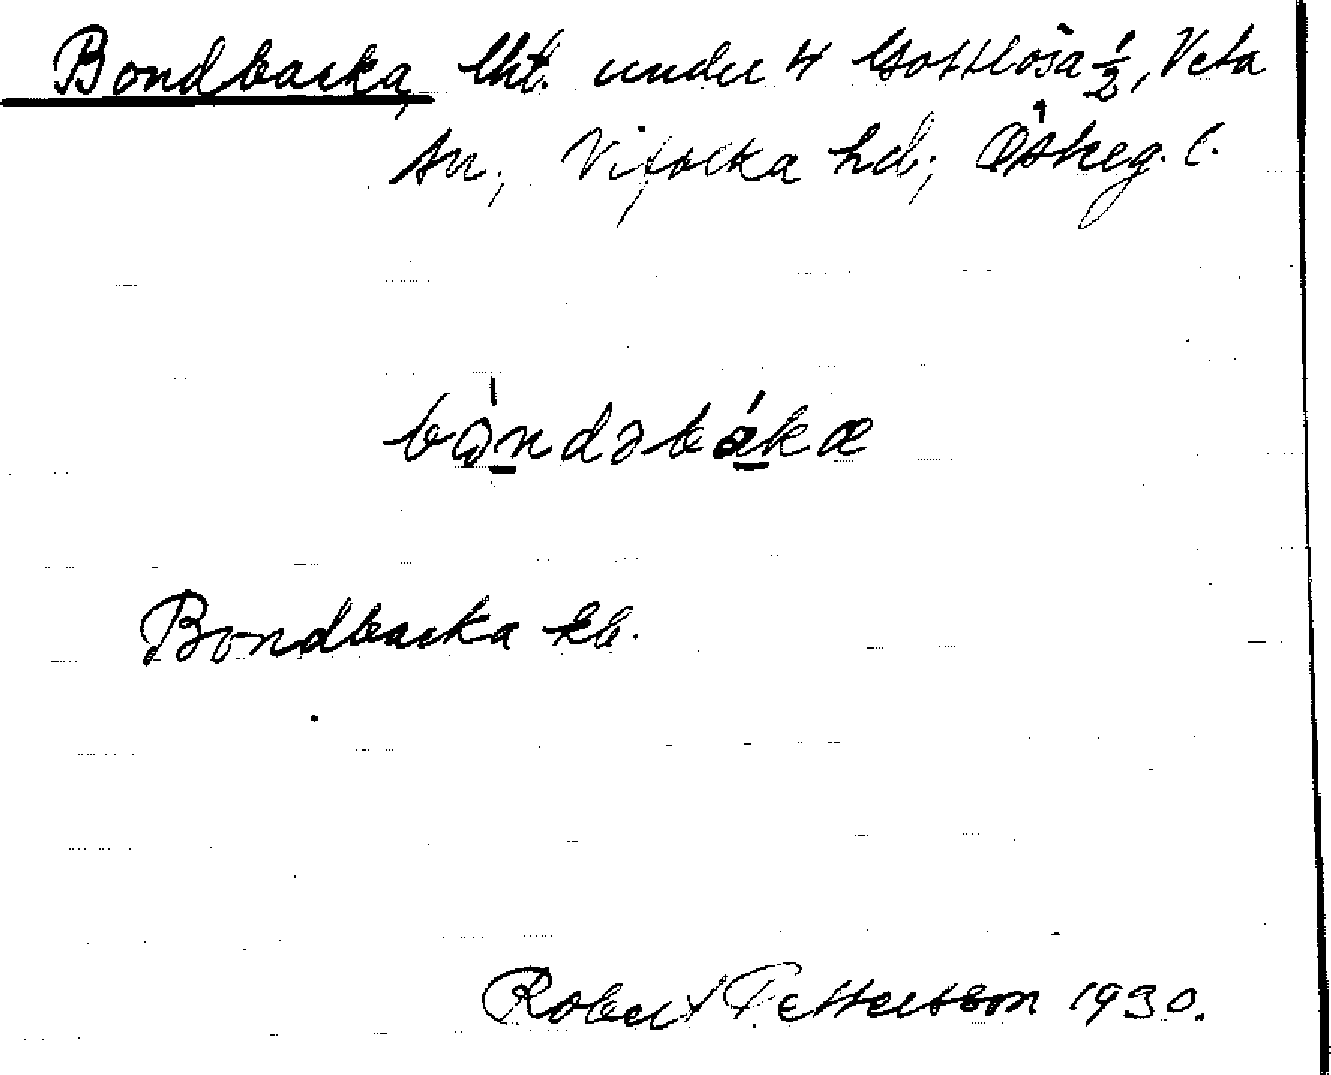 Bondbacka, lht. under 4 Gottlösa ½, Veta
sn., Vifolka hd., Östrg. l.
bòndəbákа
Bondbacka kb.
Robert Pettersson 1930.